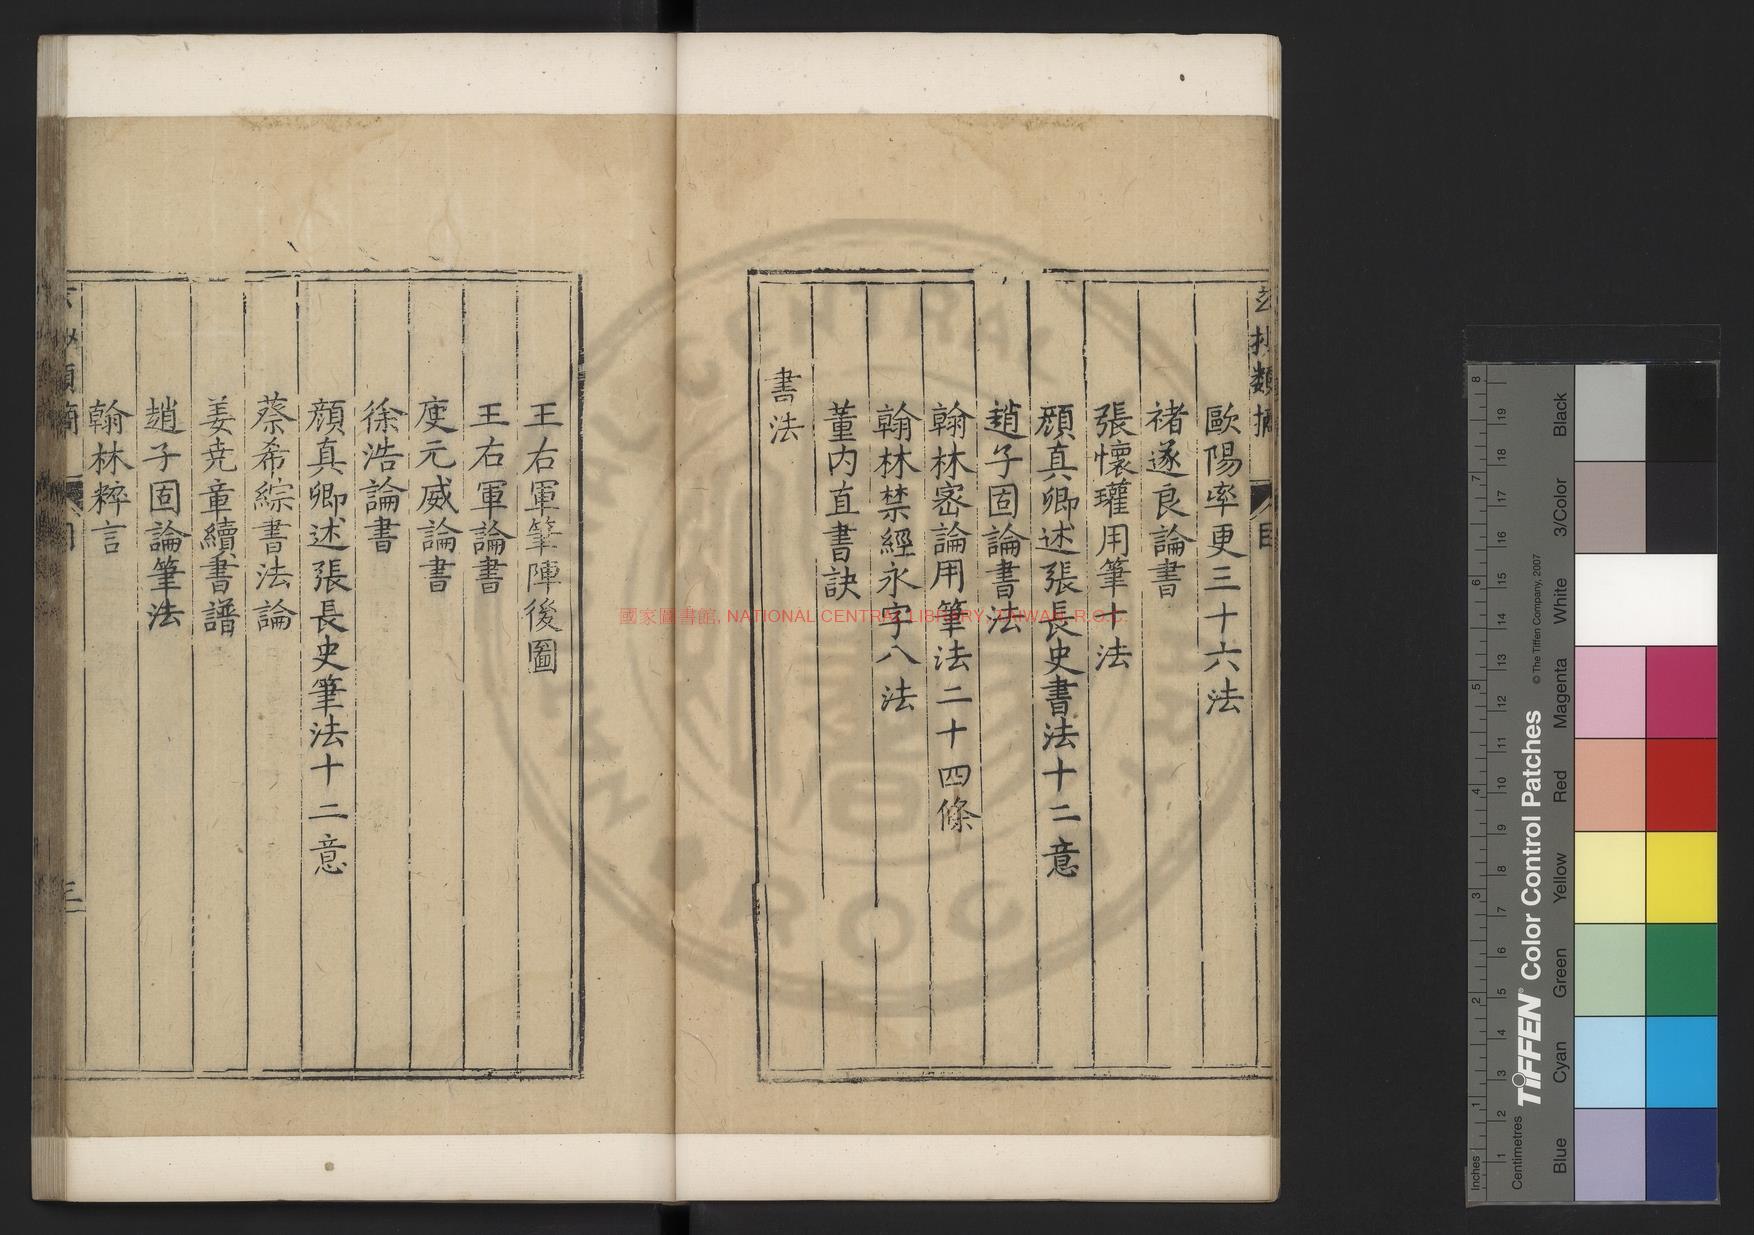 歐陽率更三十六法
褚遂良論書
張懷瓘用筆十法
顏真卿述張長史書法十二意
趙子固論書法
翰林密論用筆法二十四條
翰林禁經永字八法
董內直書訣
書法
王右軍筆陣後圖
王右軍論書
庾元威論書
徐浩論書
顏真卿述張長史筆法十二意
蔡希綜書法論
姜堯章續書譜
趙子固論筆法
翰林粹言
三
國家圖書館, NATIONAL CENTRAL LIBRARY, TAIWAN, R.O.C.
Inches
Centimetres
TIFFEN Color Control Patches
© The Tiffen Company, 2007
Blue
Cyan
Green
Yellow
Red
Magenta
White
3/Color
Black